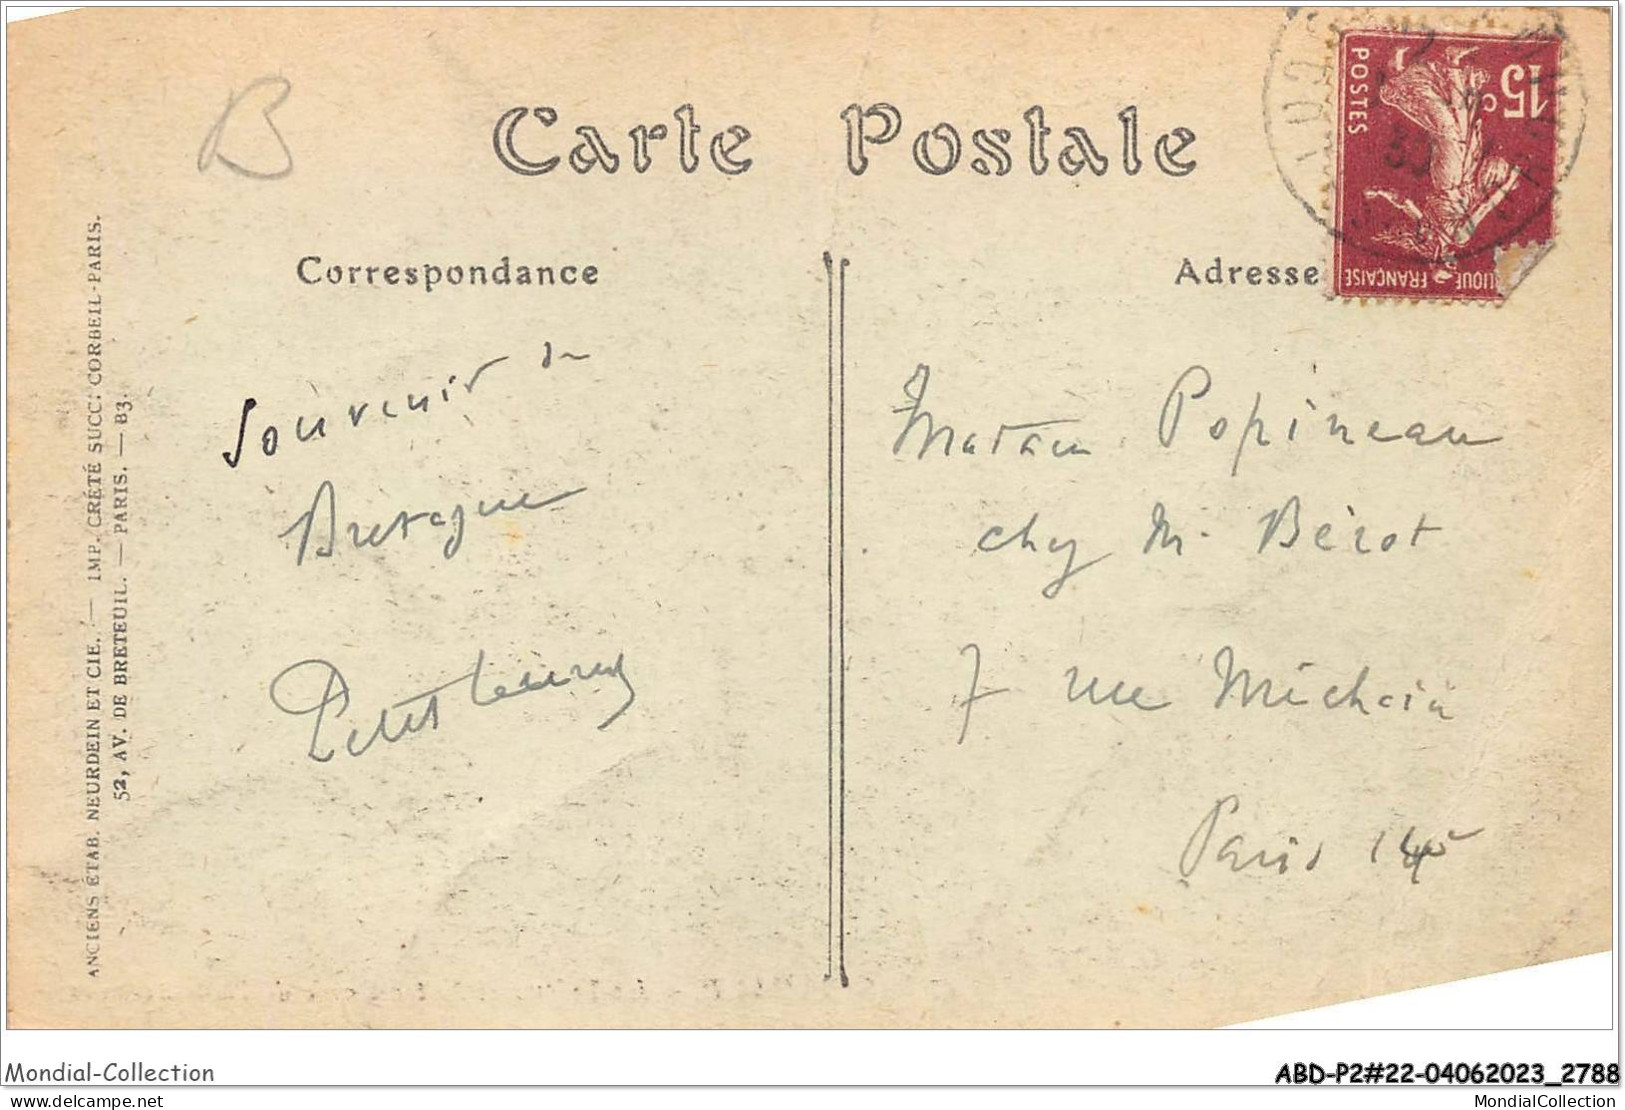 Carte Postale
Correspondance
Adresse
15c
POSTES
FRANÇAISE
30
B
ANCIENS ÉTAB. NEURDEIN ET CIE. — IMP. CRÉTÉ SUCC: CORBEIL-PARIS.
52, AV. DE BRETEUIL. — PARIS. — B3.
Souvenir de
Bretagne
Madame Popineau
chez M. Bérot
7 rue
Paris 14e
Mondial-Collection
ABD-P2#22-04062023_2788
delcampe.net
MondialCollection